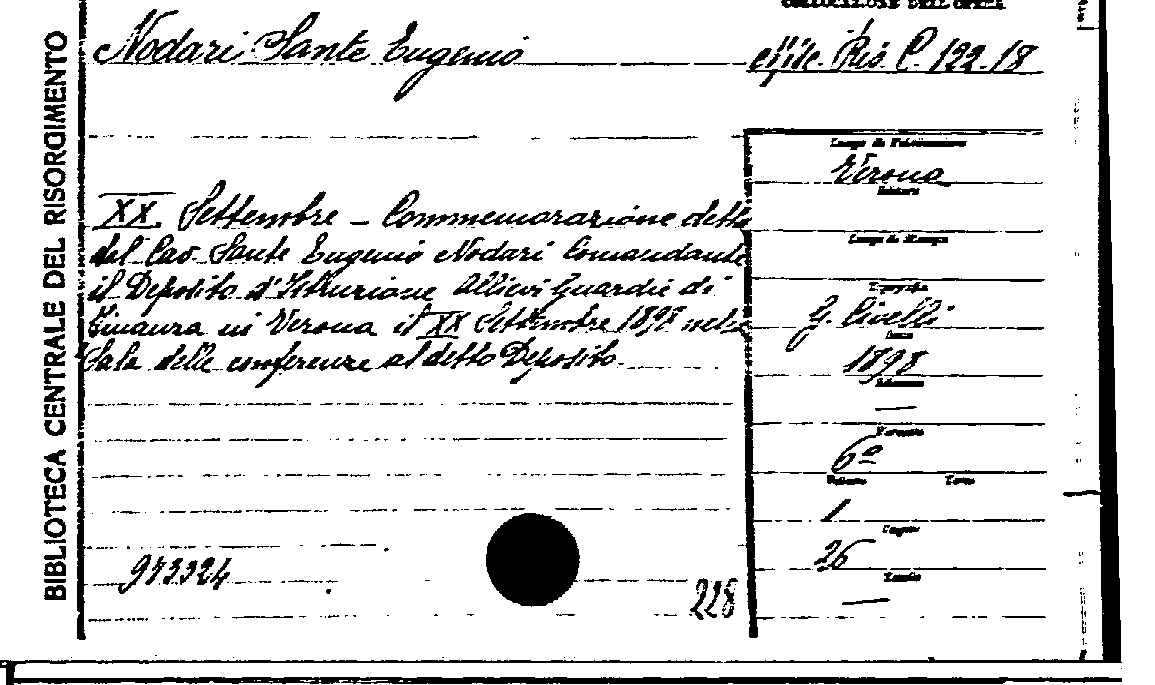 BIBLIOTECA CENTRALE DEL RISORGIMENTO
COLLOCAZIONE DELL'OPERA
Nodari Sante Eugenio
Ris. C. 122-18
XX Settembre - Commemorazione detta
dal Cav. Sante Eugenio Nodari Comandante
il Deposito d'Istruzione Allievi Guardie di
Finanza in Verona il XX Settembre 1898 nella
Sala delle conferenze al detto Deposito.
Luogo di Pubblicazione
Verona
Editore
Luogo di Stampa
Tipografia
G. Civelli
Anno
1898
Edizione
—
Formato
6º
Volume Tomo
1
Pagine
26
Tavole
—
973324
228